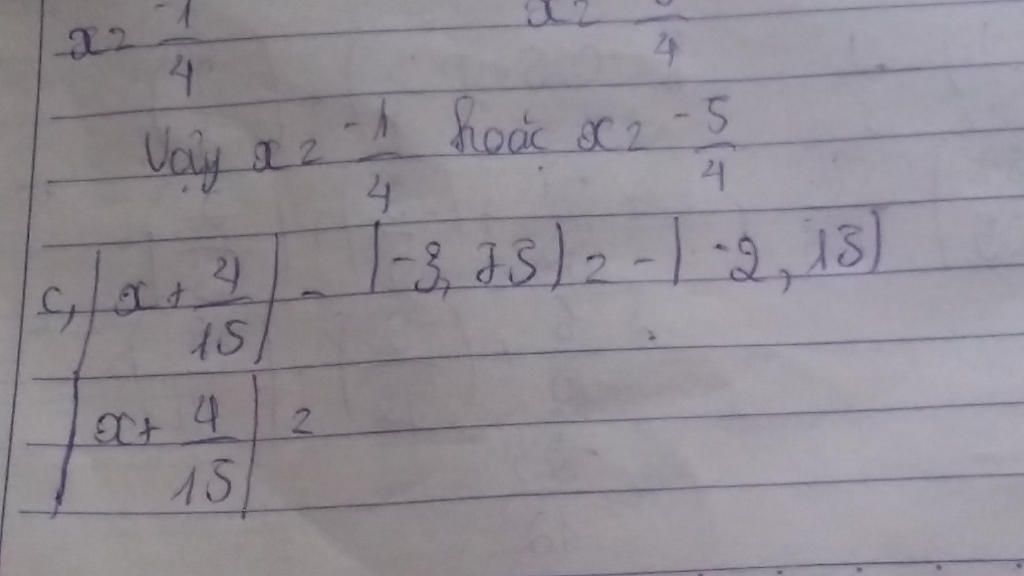 x = -1/4 x = /4
Vậy x = -1/4 hoặc x = -5/4
c, |x + 4/15| - |-3,75| = -|-2,15|
|x + 4/15| =